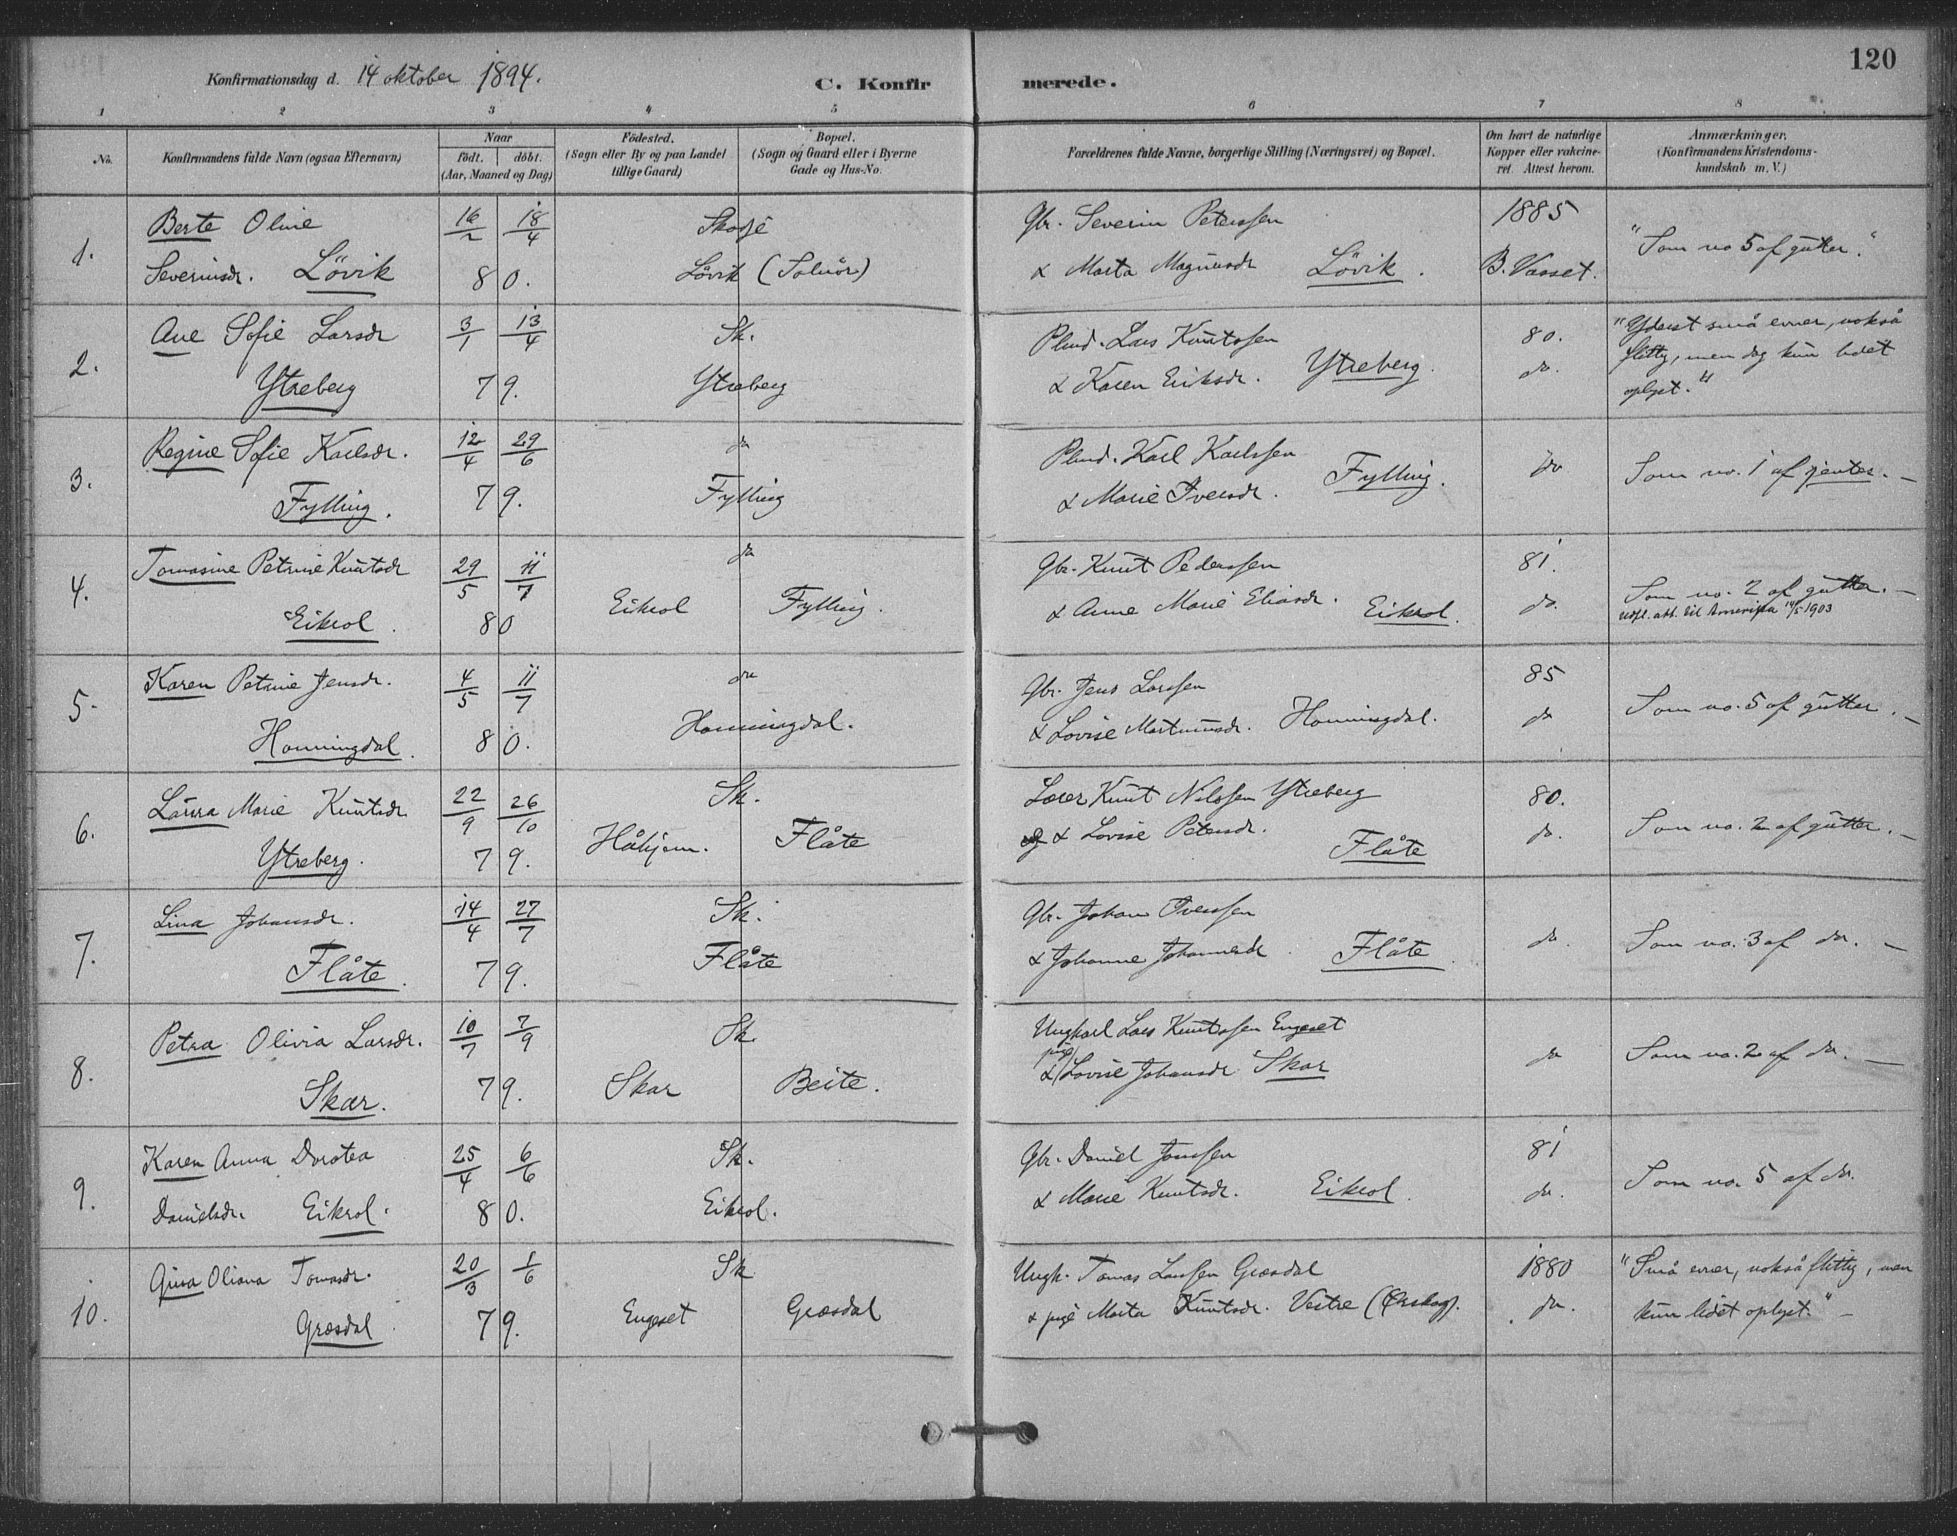 120
Konfirmationsdag d. 14 oktober 1894.
C. Konfir merede.
1 2 3 4 5 6 7 8
No.
Konfirmandens fulde Navn (ogsaa Efternavn)
Naar
födt. döbt.
(Aar, Maaned og Dag)
Födested.
(Sogn eller By og paa Landet
tillige Gaard)
Bopæl.
(Sogn og Gaard eller i Byerne
Gade og Hus-No.
Forældrenes fulde Navne, borgerlige Stilling (Næringsvei) og Bopæl.
Om havt de naturlige
Kopper eller vakcine-
ret. Attest herom.
Anmærkninger.
(Konfirmandens Kristendoms-
kundskab m. V.)
1. Berte Oline 16/2 18/4 Skodje Gbr. Severin Peterssen 1885
Severinsdr. Lövik 80. Lövik (Solnör) & Marta Magnusdr Lövik. B. Vasset. "Som no 5 af gutter."
2. Ane Sofie Larsdr 3/1 13/4 Sk. Plmd. Lars Knutssen 80. "Yderst små evner, nokså
Ytreberg 79. Ytreberg & Karen Eriksdr. Ytreberg. do. flittig, men dog kun lidet
oplyst."
3. Regine Sofie Karlsdr. 12/4 29/6 do Plmd. Karl Karlssen
Fylling. 79. Fylling & Marie Iversdr. Fylling. do Som no. 1 af jenter. —
4. Tomasine Petrine Knutsdr 29/5 11/7 do Gbr. Knut Pederssen 81.
Eikrol. 80 Eikrol Fylling. & Anne Marie Eliasdr. Eikrol. do. Som no. 2 af gutter. —
udfl. att. til Amerika 14/5 1903
5. Karen Petrine Jensdr. 4/5 11/7 do Gbr. Jens Larssen 85
Honningdal. 80. Honningdal. & Lovise Martinusdr. Honningdal. do Som no. 5 af gutter. —
6. Laura Marie Knutsdr 22/9 26/10 Sk. Lærer Knut Nilssen Ytreberg 80.
Ytreberg. 79. Håhjem. Flåte & Lovise Petersdr. Flåte do. Som no. 2 af gutter. —
7. Lina Johansdr. 14/4 27/7 Sk. Gbr. Johan Iverssen
Flåte. 79. Flåte & Johanne Johannesdr Flåte. do. Som no. 3 af do. —
8. Petra Olivia Larsdr. 10/7 7/9 Sk. Ungkarl Lars Knutssen Engeset
Skar. 79. Skar Beite. & pige Lovise Johansdr Skar do Som no. 2 af do. —
9. Karen Anna Dorotea 25/4 6/6 Sk. Gbr. Daniel Jonssen 81
Danielsdr. Eikrol. 80. Eikrol. & Marie Knutsdr. Eikrol. do. Som no. 5 af do.
10. Gina Oliana Tomasdr. 20/3 1/6 Sk Ungk. Tomas Larssen Græsdal 1880 "Små evner, nokså flittig, men
Græsdal 79. Engeset Græsdal & pige Marta Knutsdr. Vestre (Örskog). do. kun lidet oplyst." —